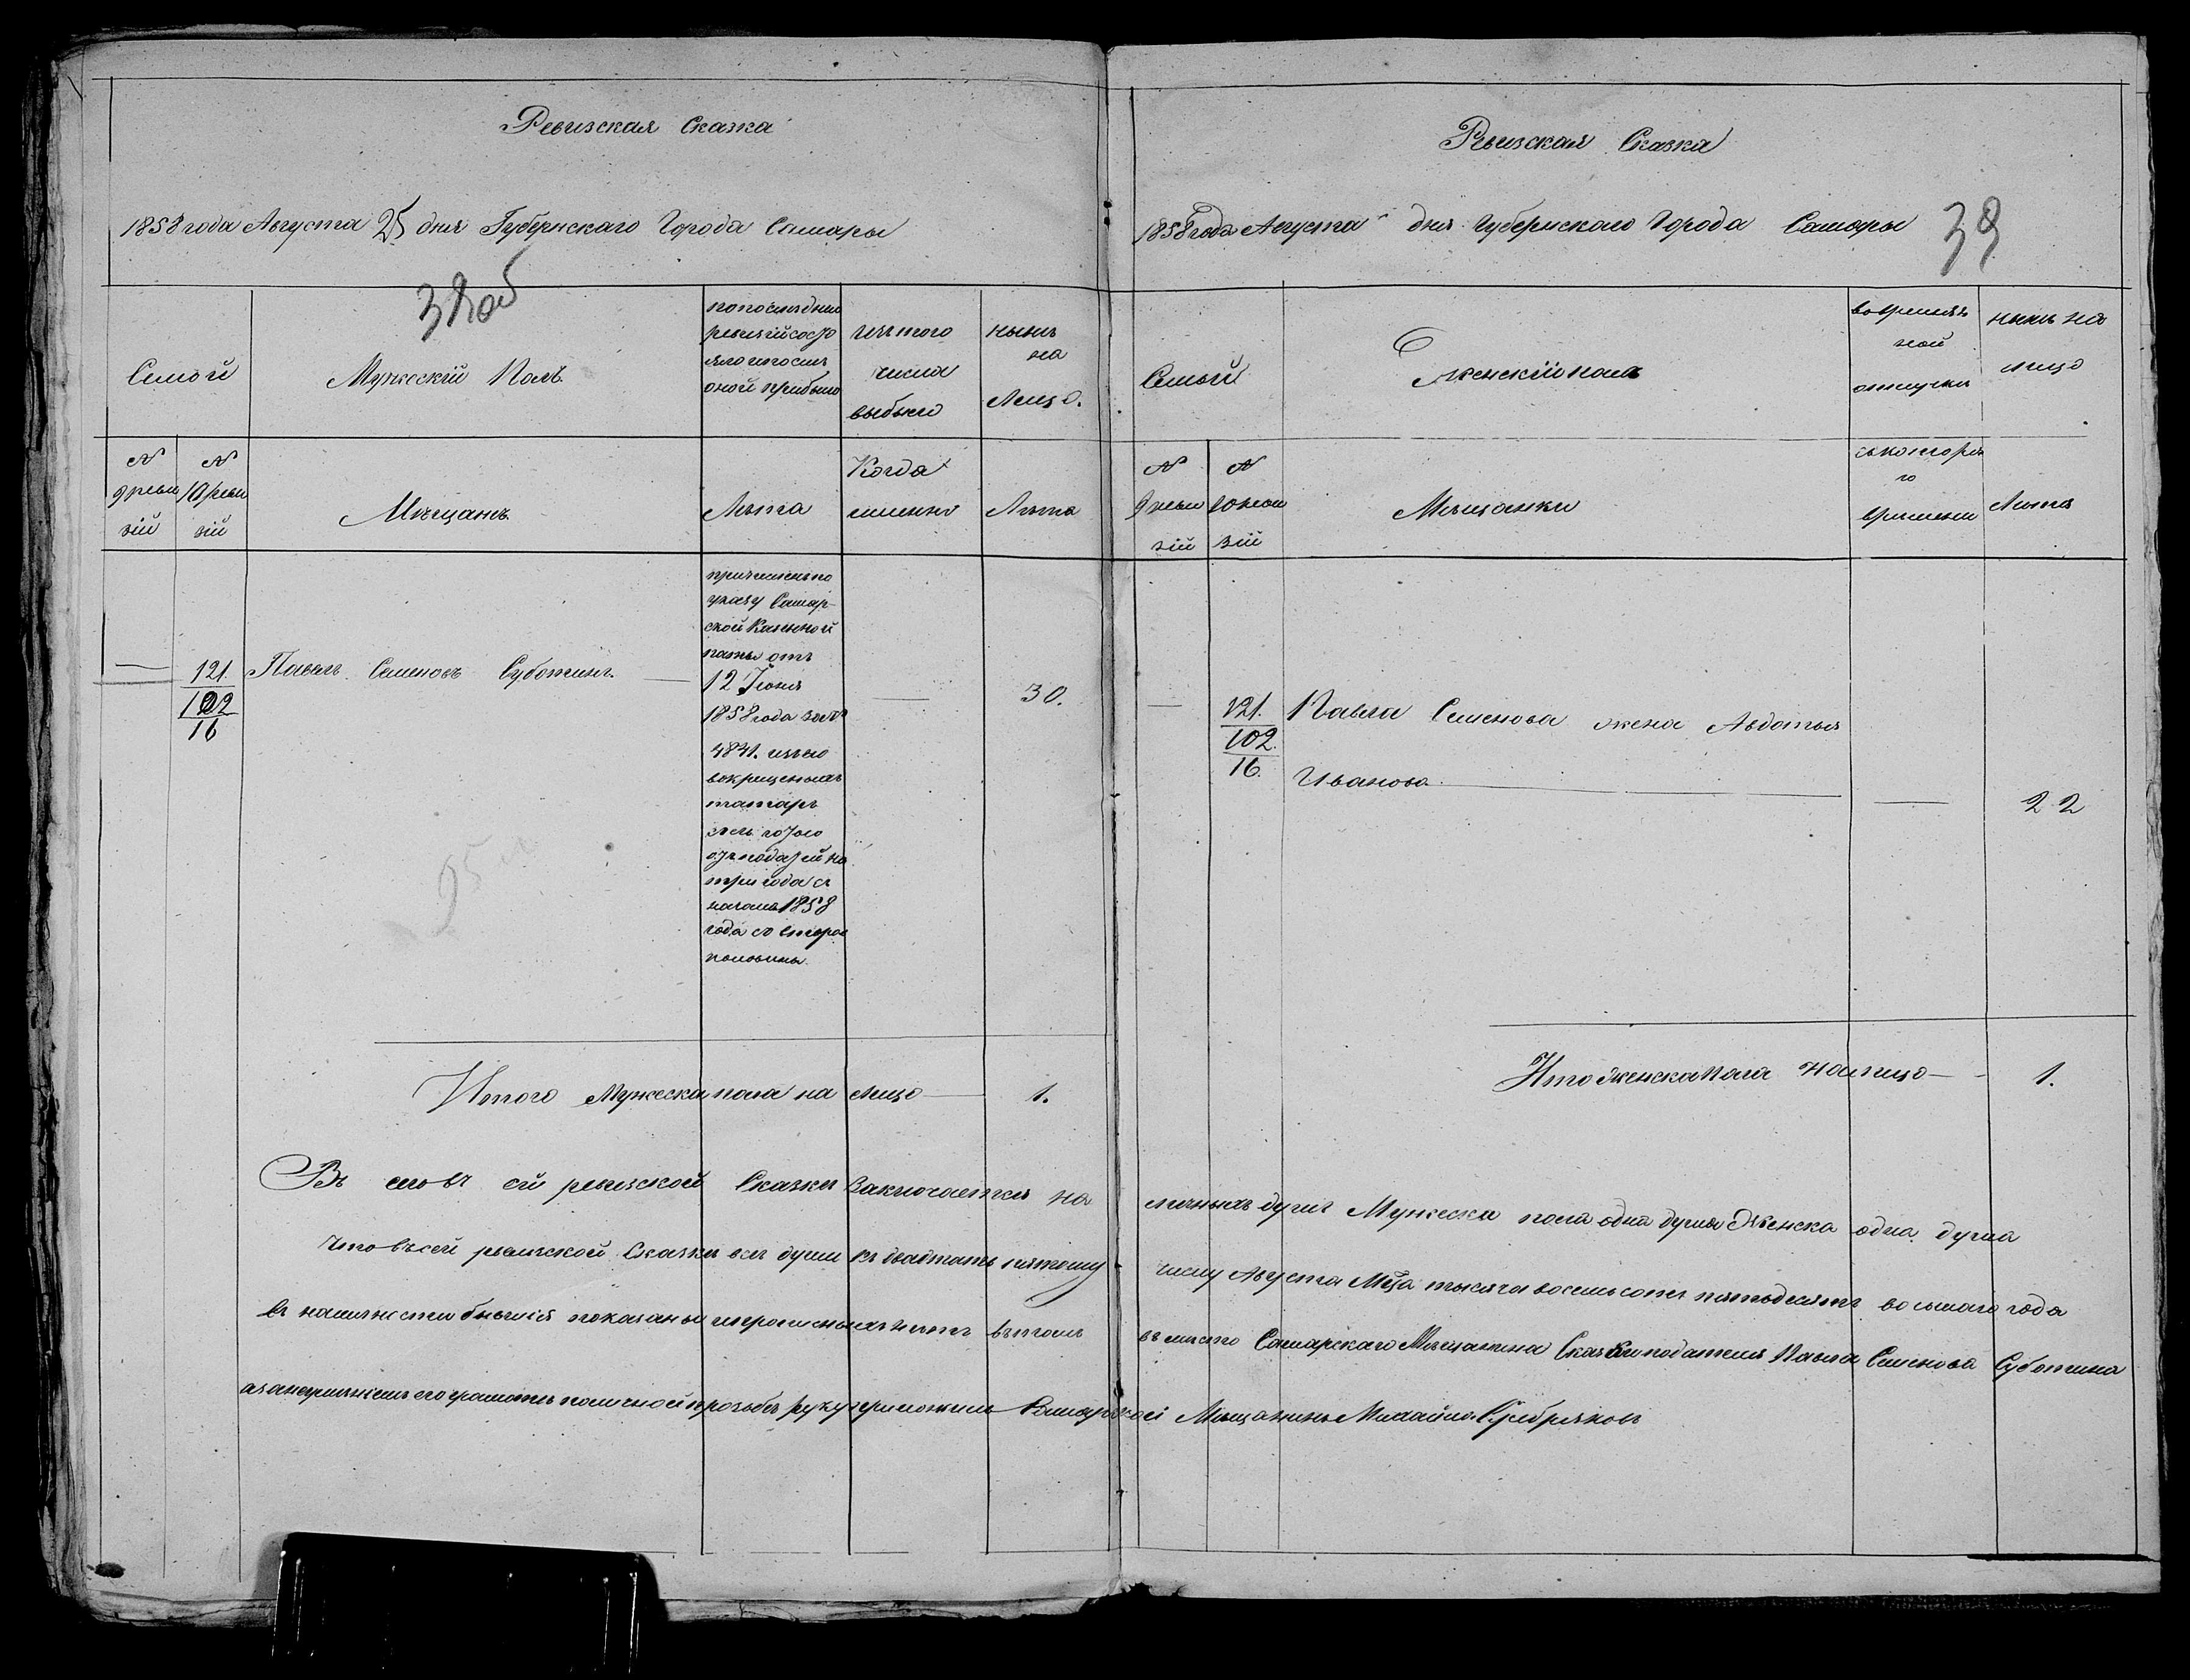 Ревизская Сказка
1858 года Августа 25 дня Губернскаго Города Самары
38 об
Семьи
Мужескій Полъ
по последней
ревизіи состо
яло и после
оной прибыло
изъ того
числа
выбыло
ныне
на
Лицо.
N
9 реви
зіи
N
10 реви
зіи
Мещанъ
Лета
Когда
именно
Лета
121.
102
16
Павелъ Семеновъ Суботинъ.
причисленъ по
указу Самар-
ской Казенной
палаты отъ
12 Іюня
1858 года за №
4841. изъ но
вокрещеныхъ
татаръ
съ льготою
отъ податей на
три года съ
начала 1858
года со второй
половины.
30.
Итого Мужеска пола на лицо 1.
Ревизская Сказка
1858 года Августа дня Губернскаго Города Самары
39
Семьи
Женскій полъ
во времен
ной
отлучке
ныне на
лицо
N
9 реви
зіи
N
10 реви
зіи
Мещанки
съ котора
го
времени
Лета
121.
102.
16.
Павла Семенова жена Авдотья
Иванова
22
Итого Женска пола на лицо 1.
Въ сей ревизской Сказки заключается на личныхъ душъ Мужеска пола одна душа Женска одна душа
Что въ сей ревизской Сказки все души къ двадцать пятому числу Августа Мца тысяча восемьсотъ пятьдесятъ восьмаго года
въ наличности бывшія показаны и прописныхъ нетъ въ томъ вместо Самарскаго Мещанина Сказкиподателя Павла Семенова Суботина
а за неуменіемъ его грамоте по личной прозьбе руку приложилъ Самарской Мещанинъ Михайла Серебряковъ